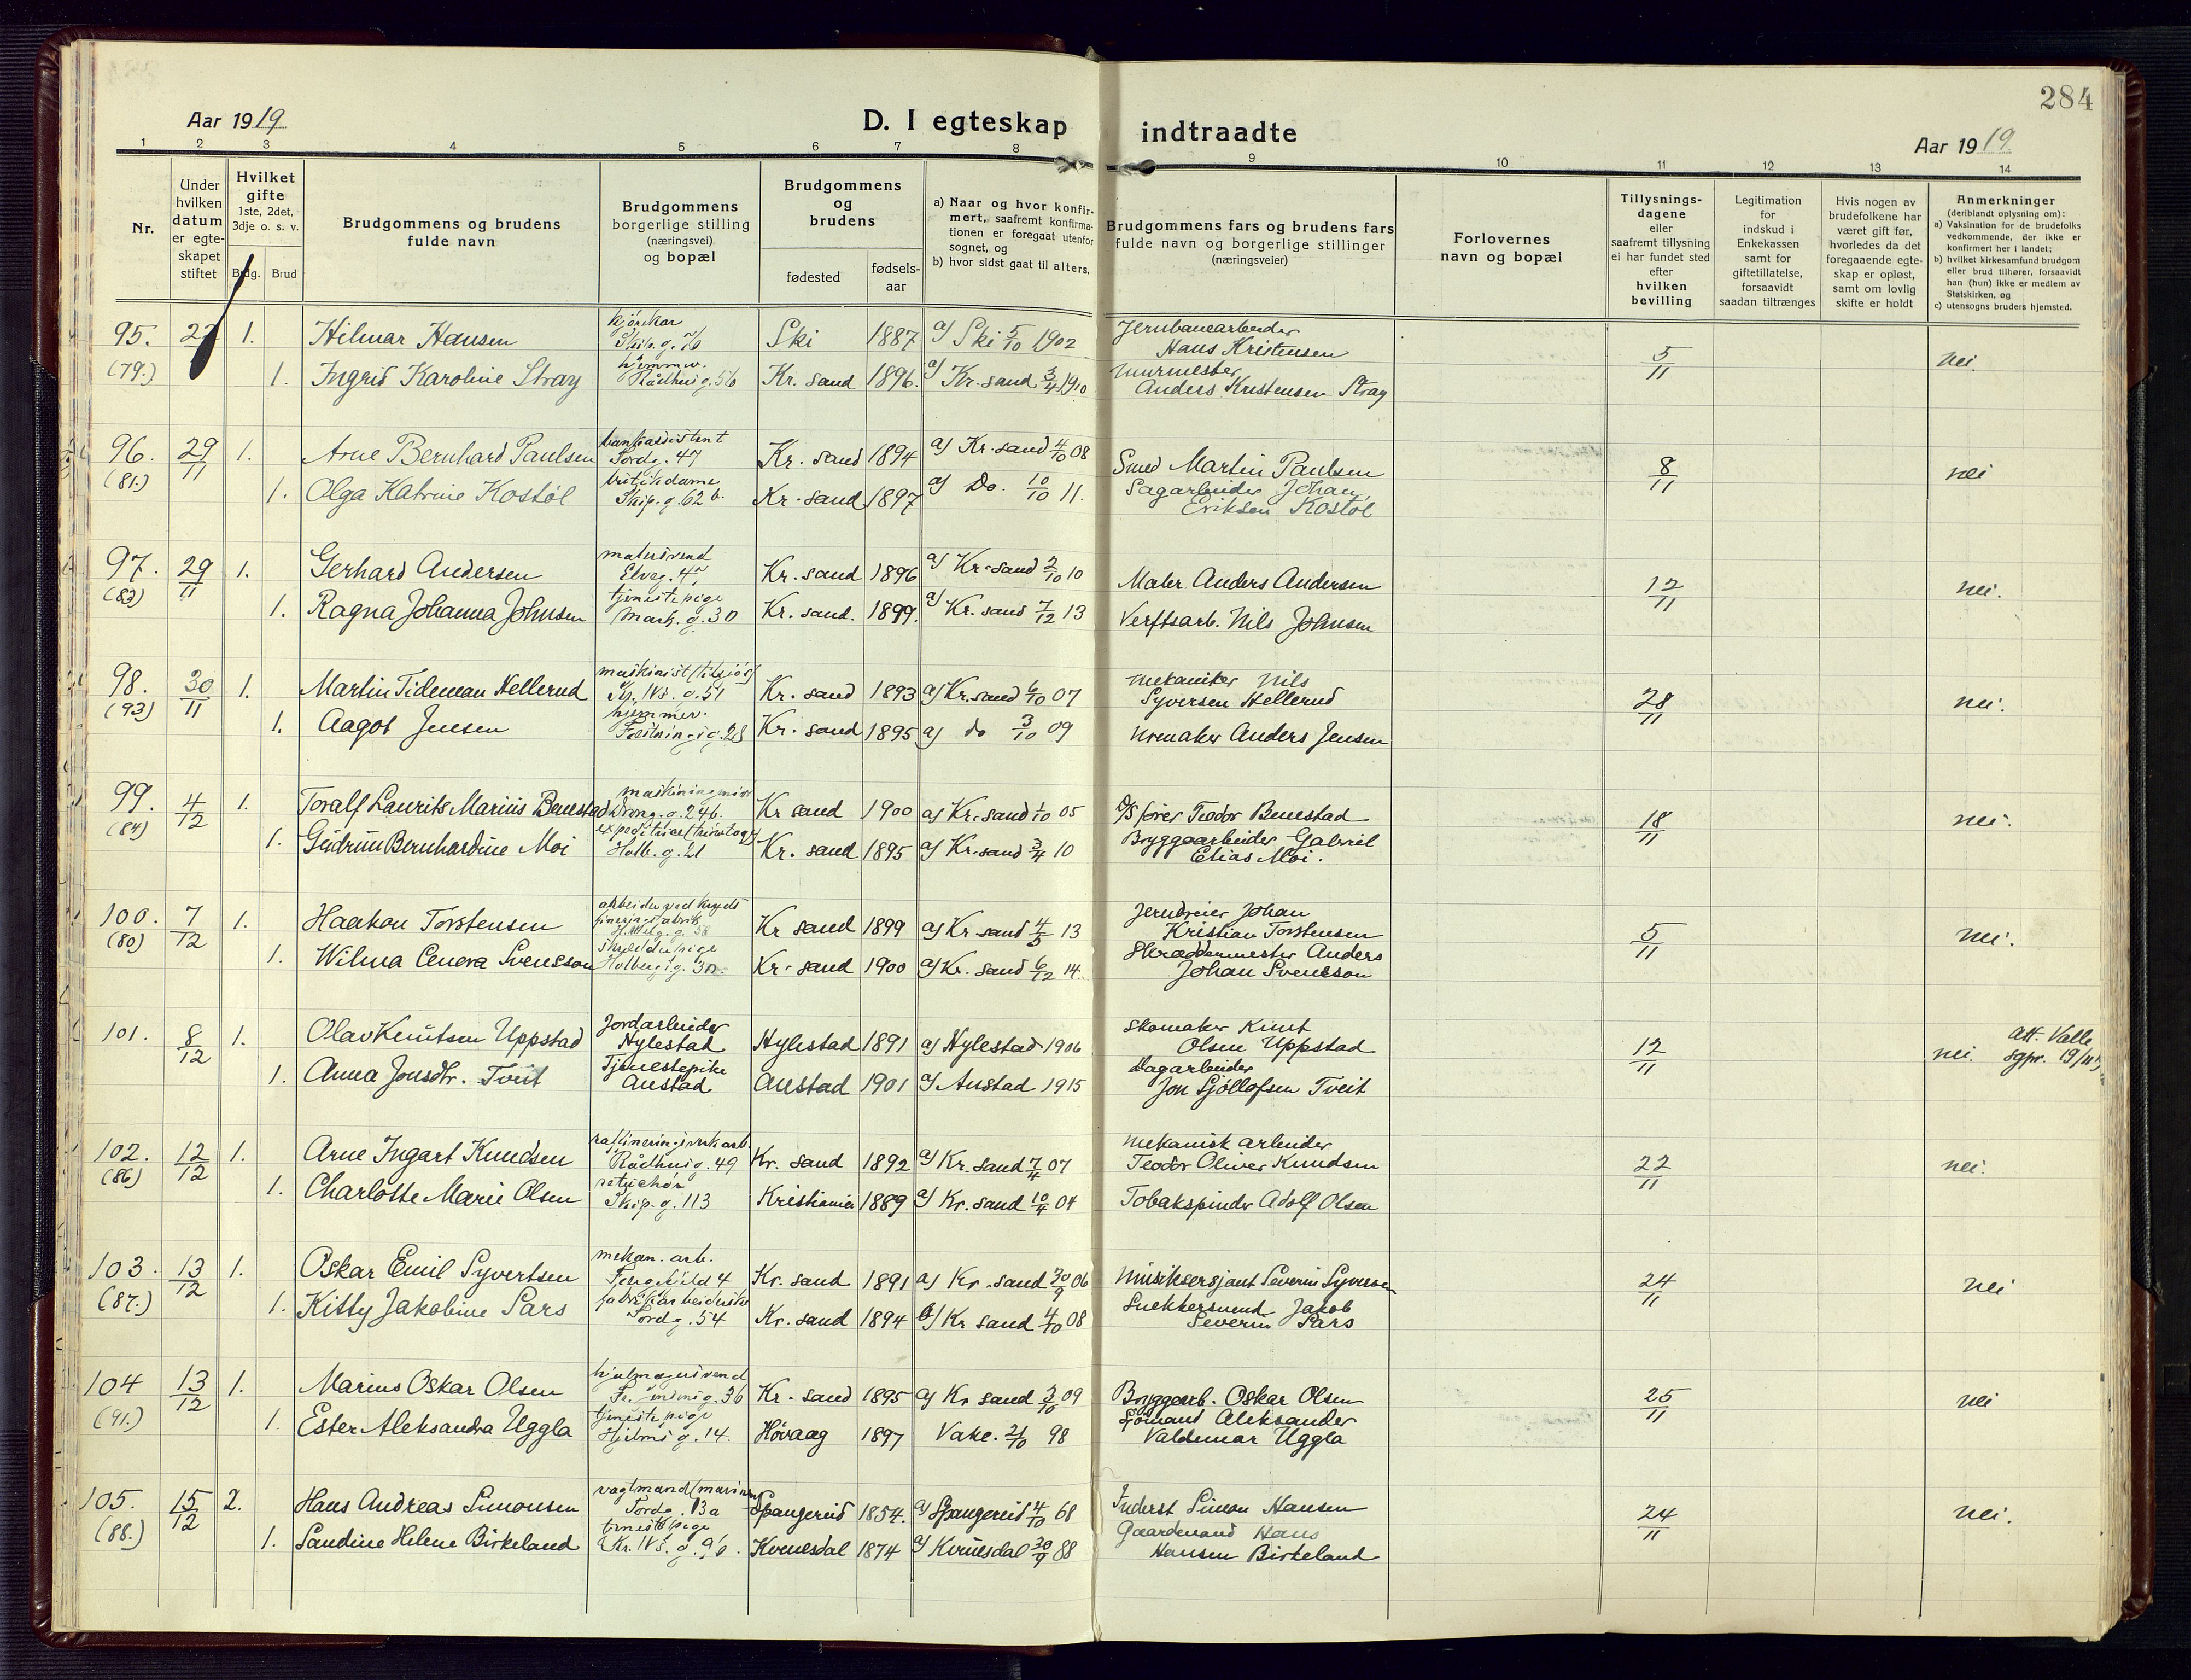 284
Aar 1919
D. I egteskap indtraadte
Aar 1919.
1 2 3 4 5 6 7 8 9 10 11 12 13 14
Nr.
Under
hvilken
datum
er egte-
skapet
stiftet
Hvilket
gifte
1ste, 2det,
3dje o. s. v.
Brudg. Brud
Brudgommens og brudens
fulde navn
Brudgommens
borgerlige stilling
(næringsvei)
og bopæl
Brudgommens
og
brudens
fødested
fødsels-
aar
a) Naar og hvor konfir-
mert, saafremt konfirma-
tionen er foregaat utenfor
sognet, og
b) hvor sidst gaat til alters.
Brudgommens fars og brudens fars
fulde navn og borgerlige stillinger
(næringsveier)
Forlovernes
navn og bopæl
Tillysnings-
dagene
eller
saafremt tillysning
ei har fundet sted
efter
hvilken
bevilling
Legitimation
for
indskud i
Enkekassen
samt for
giftetillatelse,
forsaavidt
saadan tiltrænges
Hvis nogen av
brudefolkene har
været gift før,
hvorledes da det
foregaaende egte-
skap er opløst,
samt om lovlig
skifte er holdt
Anmerkninger
(deriblandt oplysning om):
a) Vaksination for de brudefolks
vedkommende, der ikke er
konfirmert her i landet;
b) hvilket kirkesamfund brudgom
eller brud tilhører, forsaavidt
han (hun) ikke er medlem av
Statskirken, og
c) utensogns bruders hjemsted.
95. 1. Hilmar Hansen Skip. g. Ski 1887 a) Ski 5/10 1902 Jernbanearbeider
Hans Kristensen 5/11 nei.
(79.) 1. Ingrid Karoline Stray Rådhusg. 56 Kr. sand 1896. a) Kr. sand 3/4 1910 Murmester
Anders Kristensen Stray
96. 29/11 1. Arne Bernhard Paulsen bankassistent
Tordg. 47 Kr. sand 1894 a) Kr. sand 4/10 08 Smed Martin Paulsen 8/11 nei
(81.) 1. Olga Katrine Kostøl butikdame
Skip. g. 62 b. Kr. sand 1897 a) Do. 10/10 11. Sagarbeider Johan
Eriksen Kostøl
97. 29/11 1. Gerhard Andersen malersvend
Elveg. 47 Kr. sand 1896 a) Kr. sand 2/10 10 Maler Anders Andersen 12/11 nei.
(83) 1. Ragna Johanna Johnsen tjenestepige
Mark. g. 30 Kr. sand. 1899. a) Kr. sand 7/12 13 Verftsarb. Nils Johnsen
98. 30/11 1. Martin Tideman Hellerud maskinist (tilsjøs) Kr. sand 1893 a) Kr. sand 6/10 07 Mekaniker Nils
Syversen Hellerud 28/11 nei.
(93) 1. Aagot Jensen hjemmev.
Festningsg. 28 Kr. sand 1895 a) do 3/10 09 Urmaker Anders Jensen
99. 4/12 1. Toralf Laurits Marius Benestad maskiningeniør
Drong. g. 24b. Kr sand 1900 a) Kr. sand 1/10 05 D/S fører Teodor Benestad 18/11 nei.
(84) 1. Gudrun Bernhardine Moi
Holb. g. 21 Kr. sand 1895 a) Kr. sand 3/4 10 Bryggearbeider Gabriel
Elias Moi.
100. 7/12 1. Haakon Torstensen Kr sand 1899 a) Kr sand 4/5 13 Jerndreier Johan
Kristian Torstensen 5/11 nei.
(80) 1. Wilma Svensson
Holbergsg. Kr. sand 1900 a) Kr. sand 6/12 14. Skræddermester Anders
Johan Svensson
101. 8/12 1. Olav Knutsen Uppstad Jordarbeider
Hylestad Hylestad 1891 a) Hylestad 1906 Skomaker Knut
Olsen Uppstad 12/11 nei. Att. Valle
sgpr. 19/11
1. Anna Jonsdtr. Tveit Tjenestepike
Austad Austad 1901 a) Austad 1915 Dagarbeider
Jon Sjøllofsen Tveit
102. 12/12 1. Arne Ingart Knudsen raffineringsverk arb.
Rådhusg. 49 Kr. sand 1892 a) Kr. sand 7/4 07 Mekanisk arbeider
Teodor Oliver Knudsen 22/11 nei.
(86) 1. Charlotte Marie Olsen
Skip. g. 113 Kristiania 1889 a) Kr. sand 10/4 04 Tobakspinder Adolf Olsen
103. 13/12 1. Oskar Emil Syvertsen mekan. arb. Kr. sand 1891 a) Kr. sand 30/9 06 Musiksersjant Severin Syversen 24/11 nei
(87.) 1. Kitty Jakobine Sars fabrikarbeiderske
Tordg. 54 Kr. sand 1894 a) Kr sand 4/10 08 Snekkersvend Jakob
Severin Sars
104 13/12 1. Marius Oskar Olsen hjulmagersvend Kr. sand 1895 a) Kr sand 3/10 09 Bryggearb. Oskar Olsen 25/11 nei
(91.) 1. Ester Aleksandra Uggla tjenestepige
Hjelms g. 14. Høvaag 1897 21/10 98 Sjømand Aleksander
Valdemar Uggla
105. 15/12 2. Hans Andreas Simonsen vagtmand (marinen)
Tordg. 13a Spangereid 1854. a) Spangereid 4/10 68 Inderst Simon Hansen 24/11 nei.
(88.) 1. Sandine Helene Birkeland tjenestepige
Kr. IVs. g. 96. Kvinesdal 1874 a) Kvinesdal 30/9 88 Gaardmand Hans
Hansen Birkeland